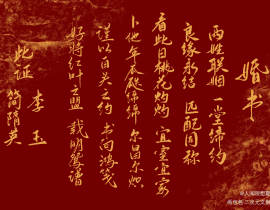 婚书
两姓联姻 一堂缔约
良缘永结 匹配同称
看此日桃花灼灼 宜室宜家
卜他年瓜瓞绵绵 尔昌尔炽
谨以白头之约 书向鸿笺
好将红叶之盟 载明鸳谱
此证
李玉
简隋英